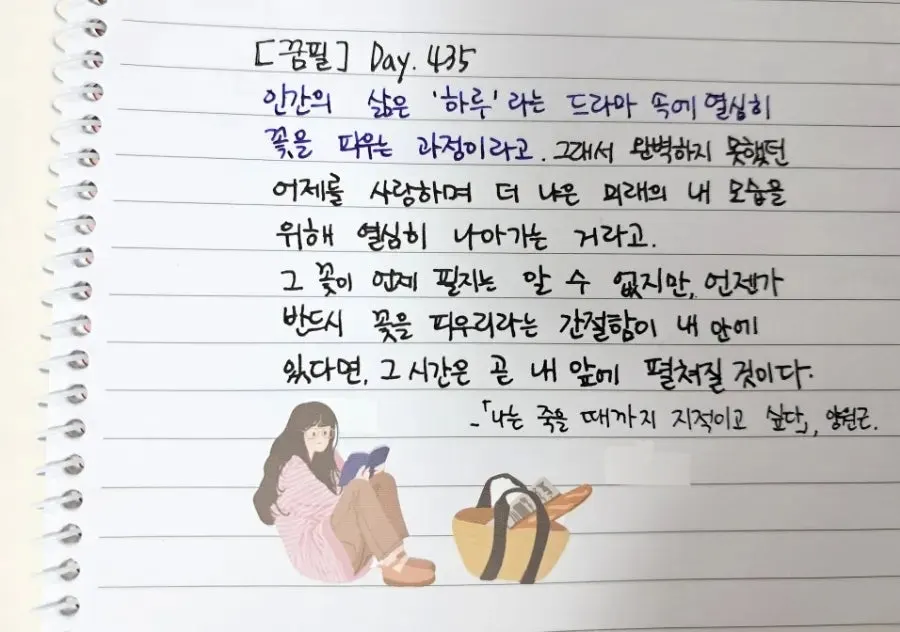 [꿈필] Day. 435
인간의 삶은 '하루'라는 드라마 속에 열심히
꽃을 피우는 과정이라고. 그래서 완벽하지 못했던
어제를 사랑하며 더 나은 미래의 내 모습을
위해 열심히 나아가는 거라고.
그 꽃이 언제 필지는 알 수 없지만, 언젠가
반드시 꽃을 피우리라는 간절함이 내 안에
있다면, 그 시간은 곧 내 앞에 펼쳐질 것이다.
-「나는 죽을 때까지 지적이고 싶다」, 양원근.